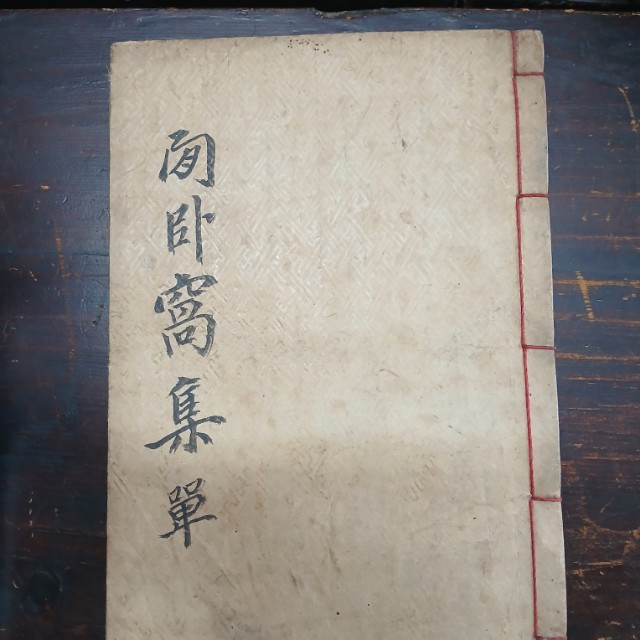 閒卧窩集單